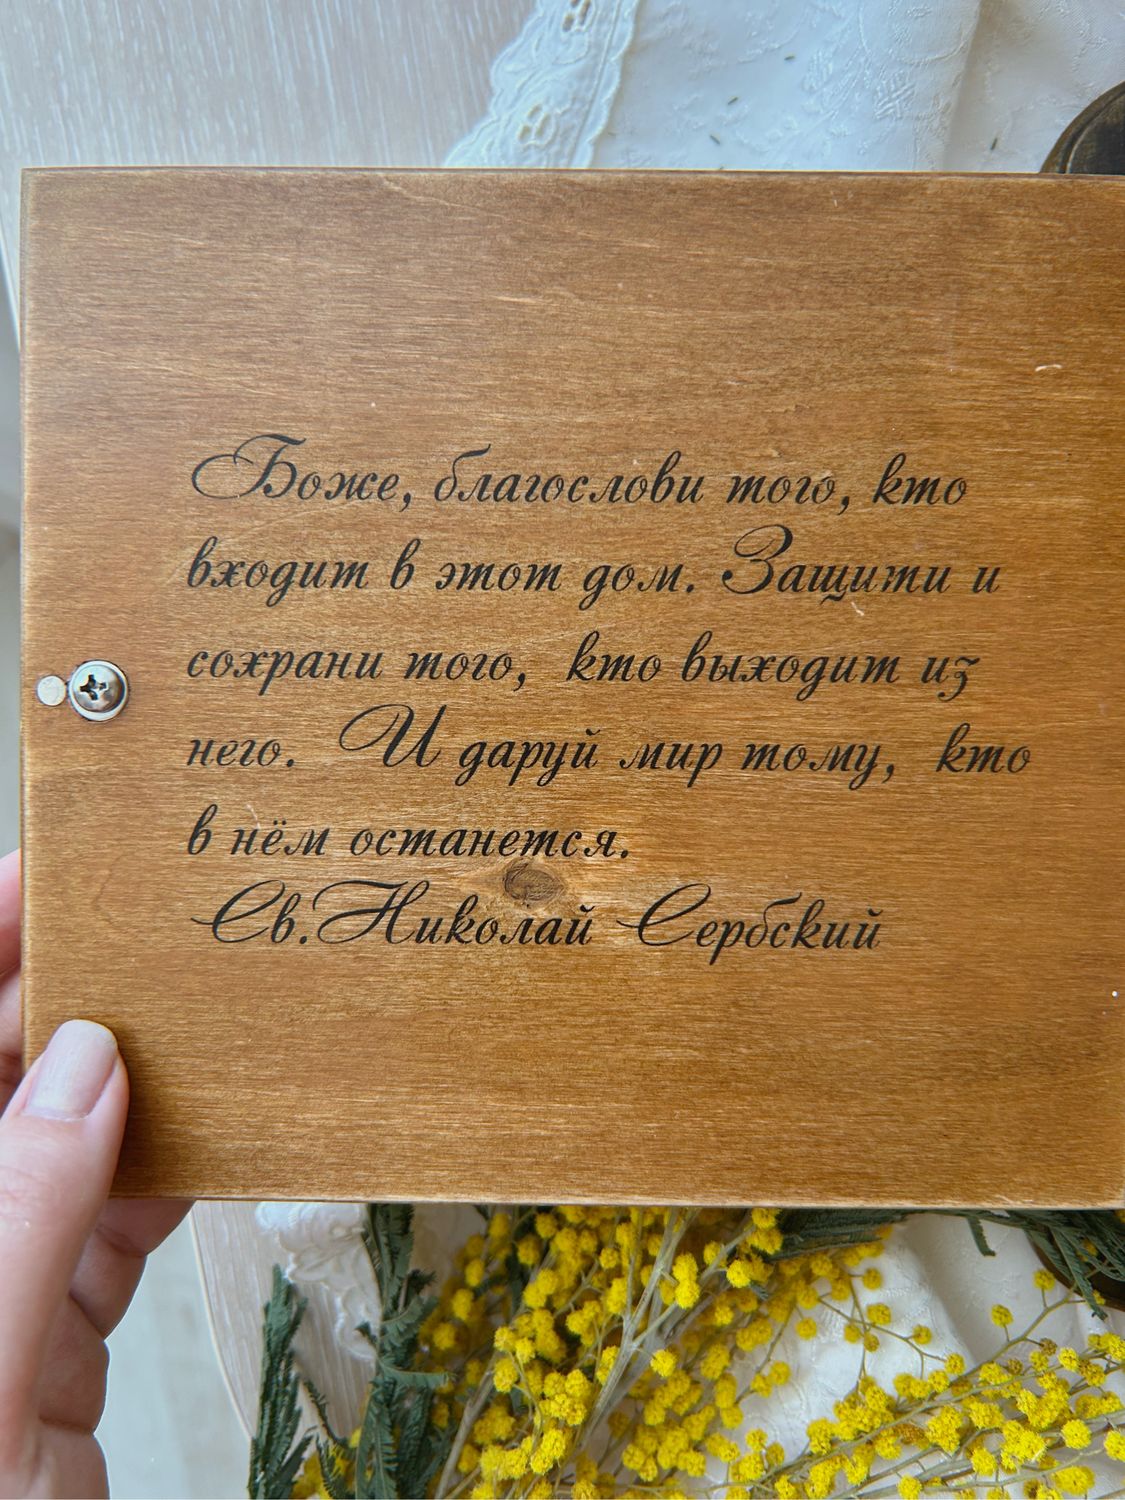 Боже, благослови того, кто
входит в этот дом. Защити и
сохрани того, кто выходит из
него. И даруй мир тому, кто
в нём останется.
Св. Николай Сербский